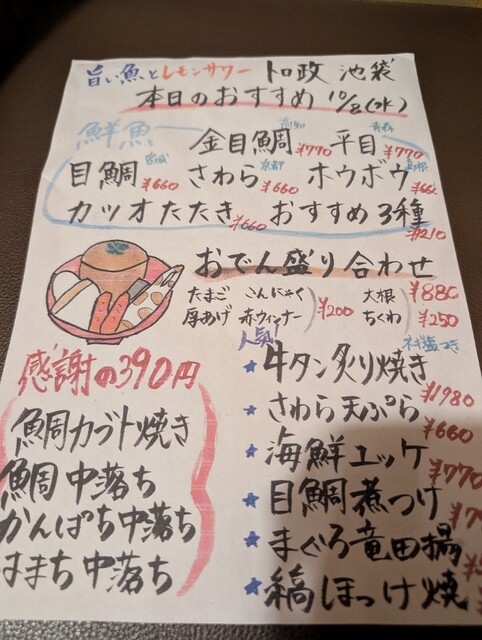 旨い魚とレモンサワー トロ政 池袋
本日のおすすめ 10/8(水)
鮮魚 金目鯛 高知 ¥770 平目 青森 ¥770
目鯛 宮城 ¥660 さわら 京都 ¥660 ホウボウ 島根 ¥66
カツオたたき ¥660 おすすめ3種 ¥1210
おでん盛り合わせ ¥880
たまご こんにゃく 大根
厚あげ 赤ウィンナー ¥200 ちくわ ¥250
感謝の390円
鯛カブト焼き
鯛中落ち
かんぱち中落ち
はまち中落ち
人気! ネギ塩つき
★ 牛タン炙り焼き ¥1980
★ さわら天ぷら ¥660
★ 海鮮ユッケ ¥770
★ 目鯛煮つけ ¥7
★ まぐろ竜田揚
★ 縞ほっけ焼